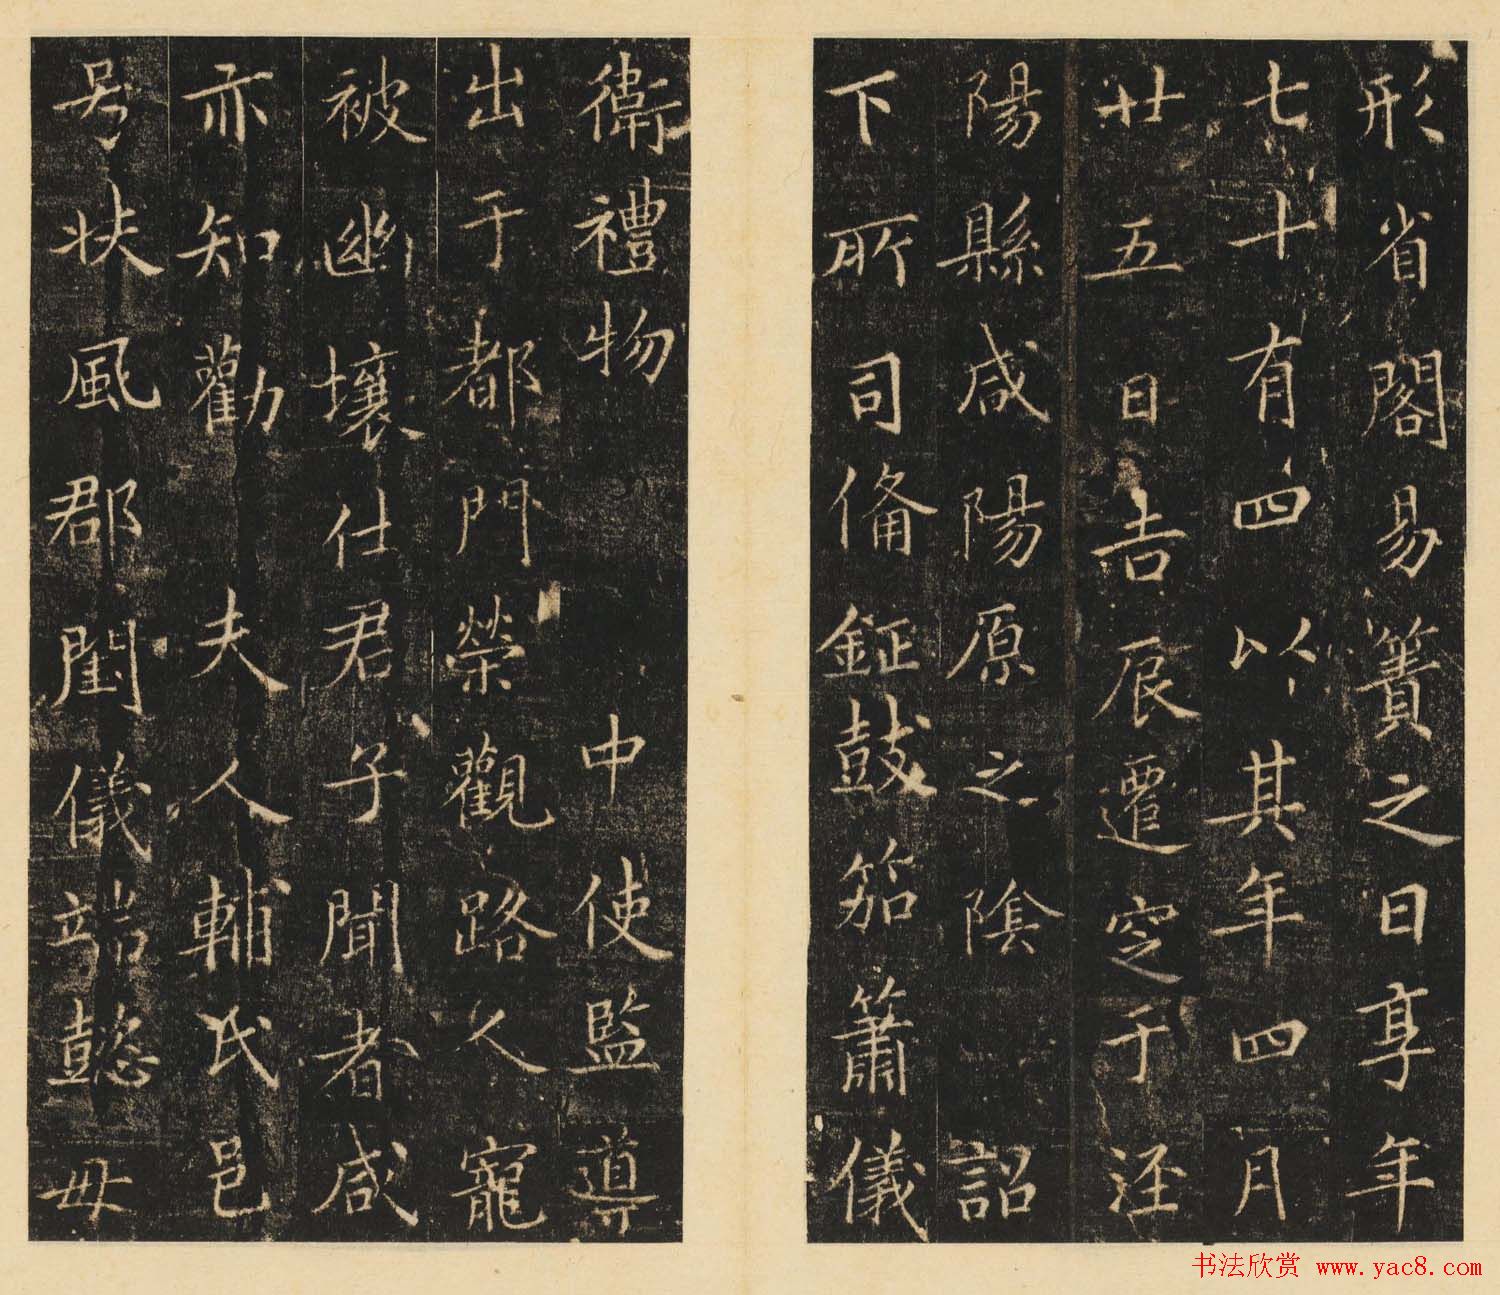 形省閣易簀之日享年
七十有四以其年四月
廿五日吉辰遷窆于涇
陽縣咸陽原之陰詔
下所司俻鉦鼓笳簫儀
衛禮物中使監導
出于都門榮觀路人寵
被幽壤仕君子聞者咸
亦知勸夫人輔氏邑
号狀風郡閨儀端懿母
书法欣赏 www.yac8.com